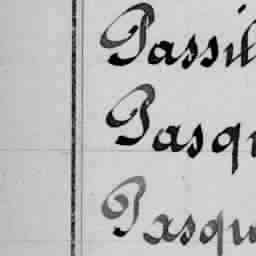 Passil
Pasqu
Pasqu